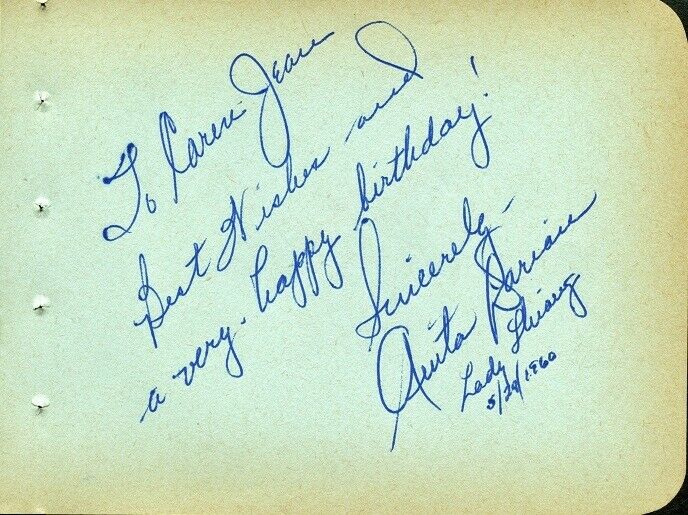 To Caren Jean
Best Wishes and
a very happy birthday!
Sincerely -
Anita Darian
Lady Thiang
5/28/1960